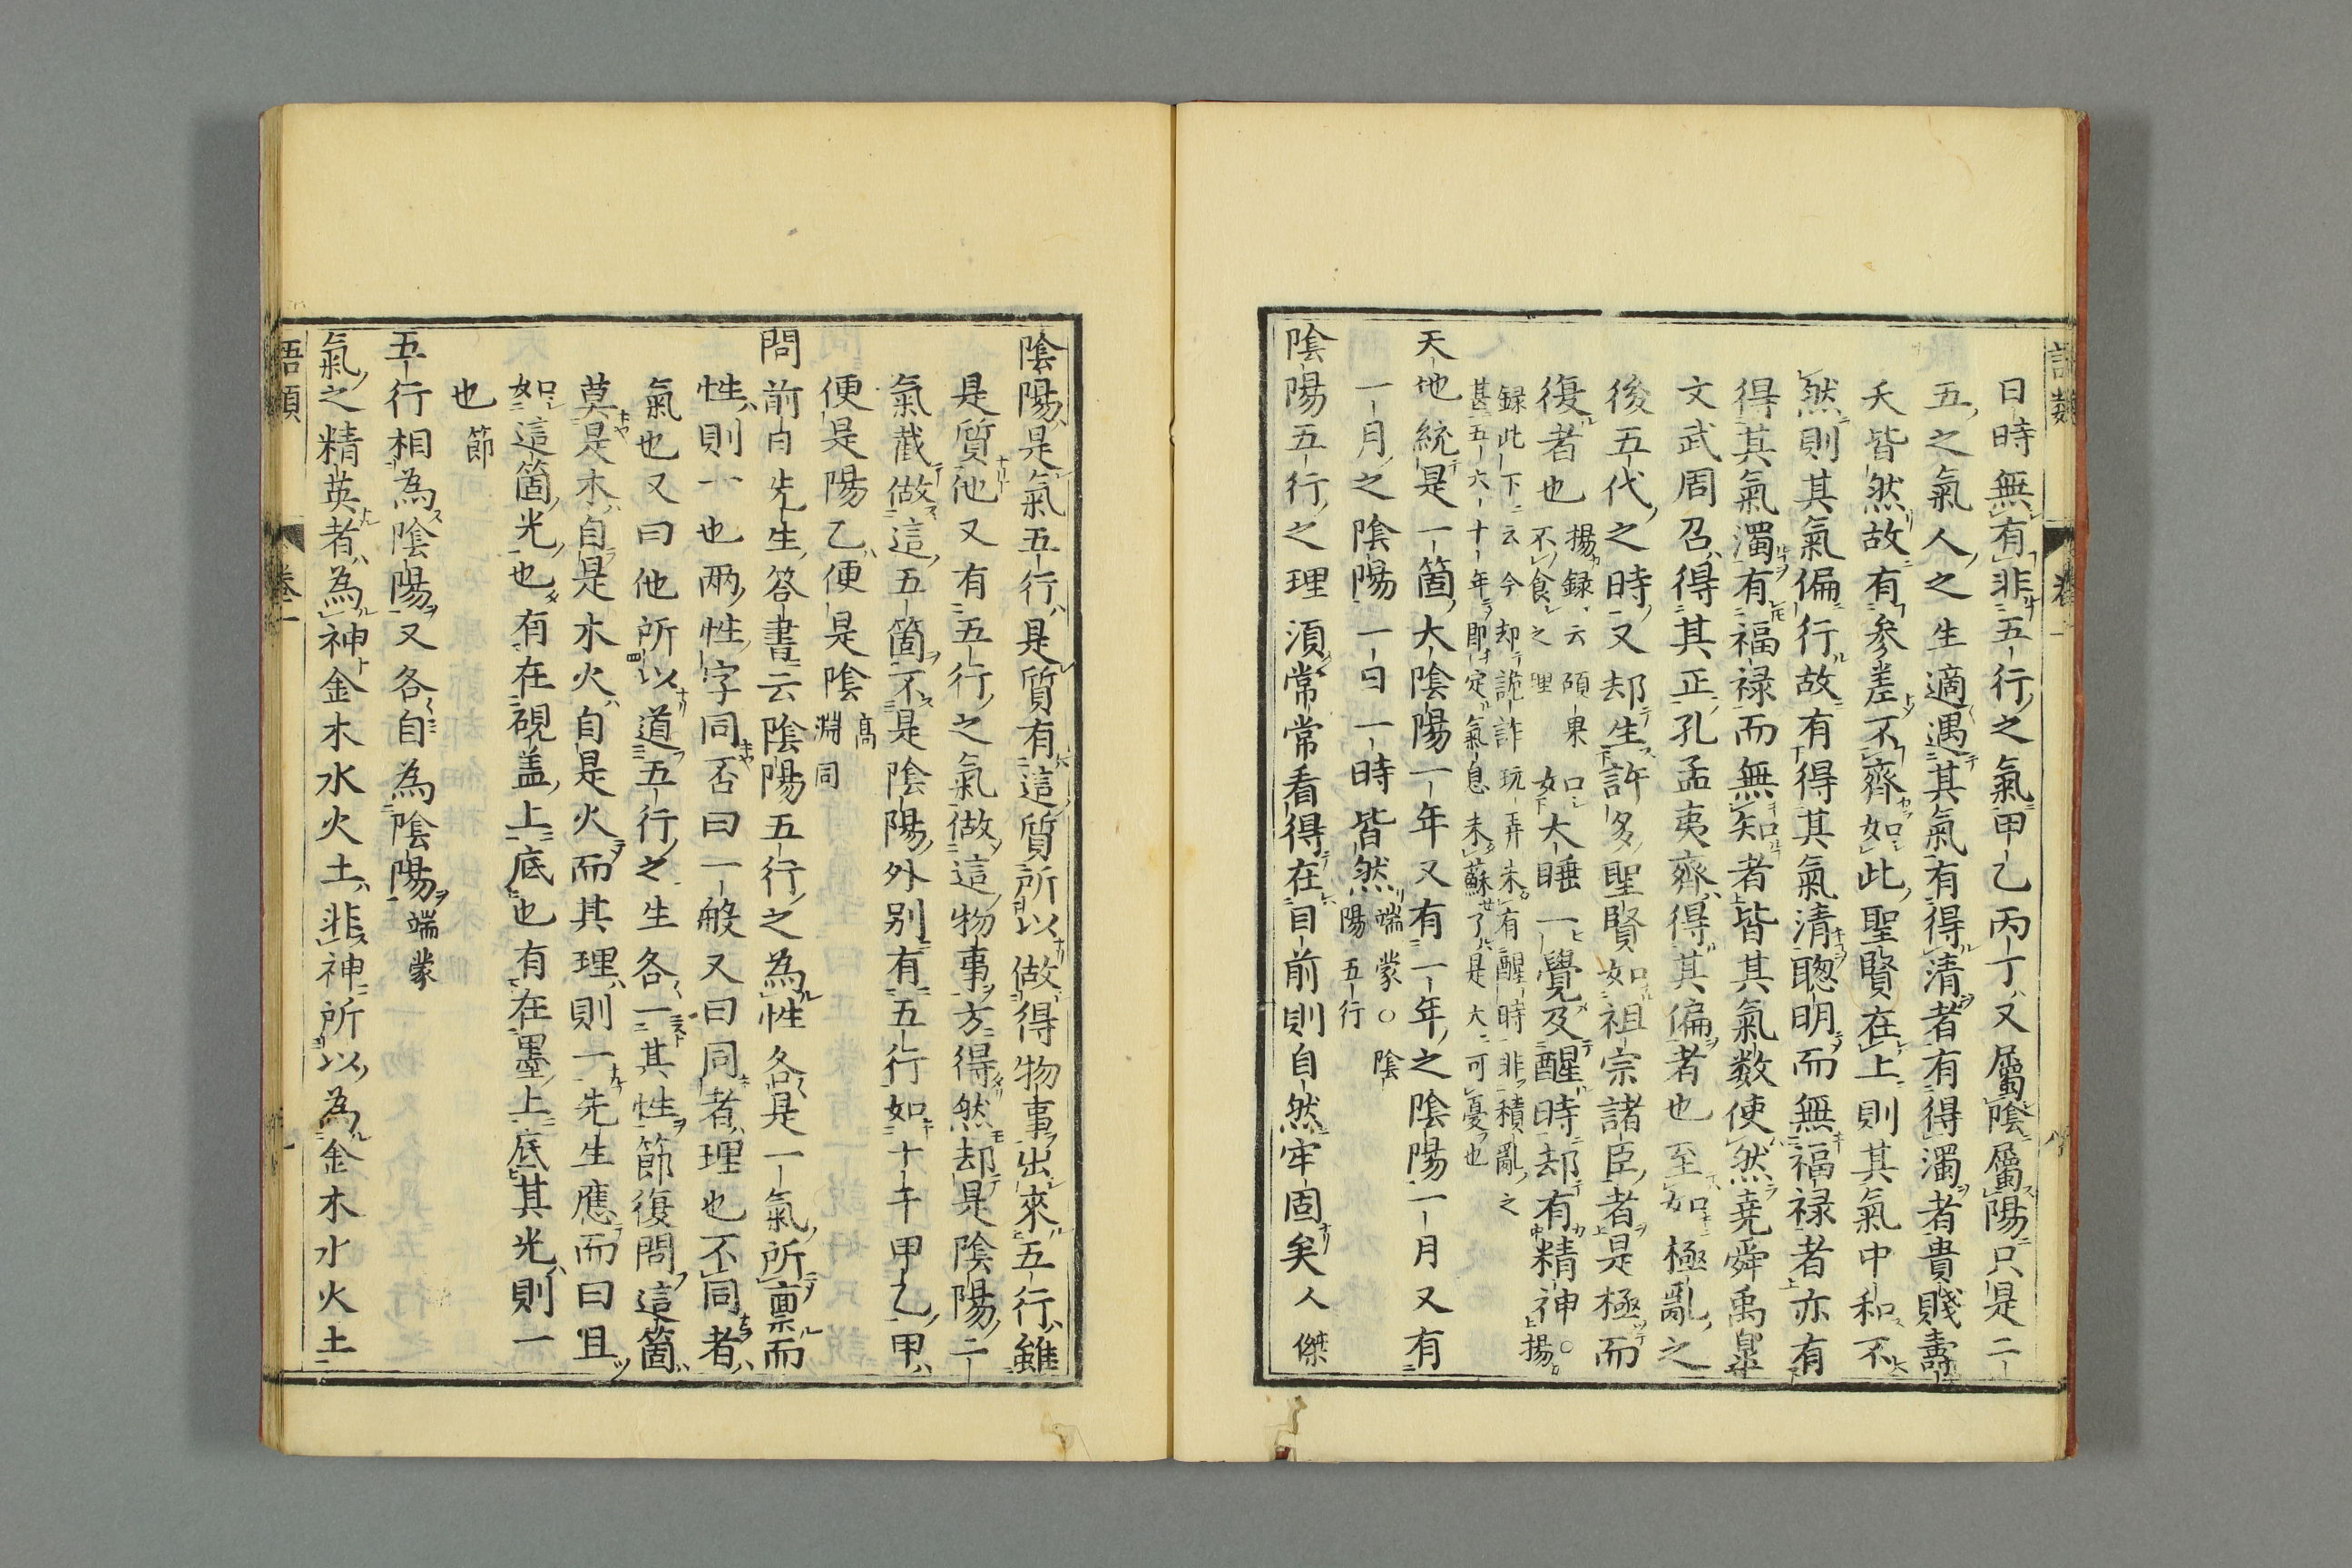 日時無有非五行之氣甲乙丙丁又屬陰屬陽只是二
五之氣人之生適遇其氣有得清者有得濁者貴賤壽
夭皆然故有參差不齊如此聖賢在上則其氣中和不
然則其氣偏行故有得其氣清聰明而無福祿者亦有
得其氣濁有福祿而無知者皆其氣数使然堯舜禹皐
文武周召得其正孔孟夷齊得其偏者也至如極亂之
後五代之時又却生許多聖賢如祖宗諸臣者是極而
復者也
揚録云碩果
不食之理
如大睡一覺及醒時却有精神
○
揚
録此下云今却詭詐玩弄未有醒時非積亂之
甚五六十年即定氣息未蘇了是大可憂也
天地統是一箇大陰陽一年又有一年之陰陽一月又有
一月之陰陽一日一時皆然
端蒙○陰
陽五行
陰陽五行之理須常常看得在目前則自然牢固矣人傑
陰陽是氣五行是質有這質所以做得物事出來五行雖
是質他又有五行之氣做這物事方得然却是陰陽二
氣截做這五箇不是陰陽外別有五行如十干甲乙甲
便是陽乙便是陰
高
淵同
問前日先生答書云陰陽五行之為性各是一氣所禀而
性則一也兩性字同否曰一般又曰同者理也不同者
氣也又曰他所以道五行之生各一其性節復問這箇
莫是木自是木火自是火而其理則一先生應而曰且
如這箇光也有在硯盖上底也有在墨上底其光則一
也
節
五行相為陰陽又各自為陰陽
端蒙
氣之精英者為神金木水火土非神所以為金木水火土
語類
卷一